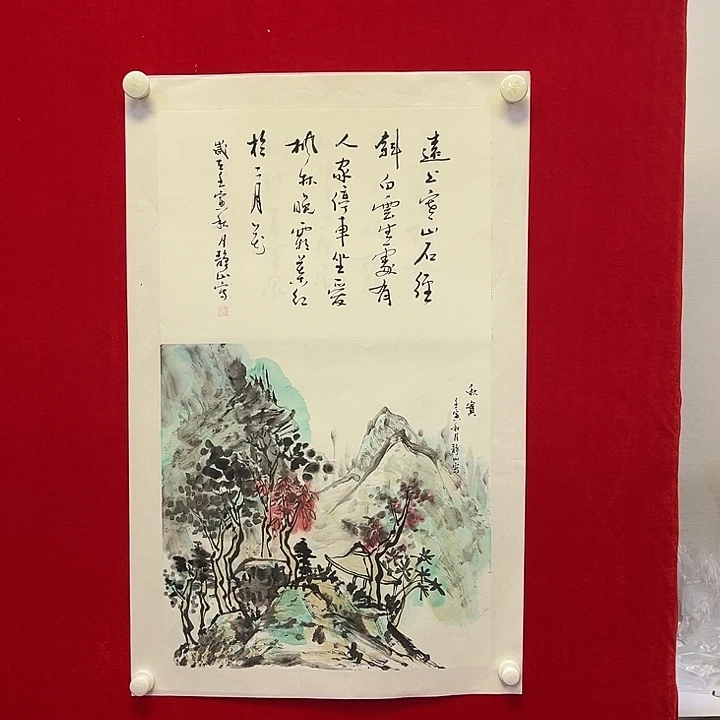 遠上寒山石徑
斜白雲生處有
人家停車坐愛
楓林晚霜葉紅
於二月花
歲在壬寅秋月靜山寫
秋實
壬寅秋月靜山寫